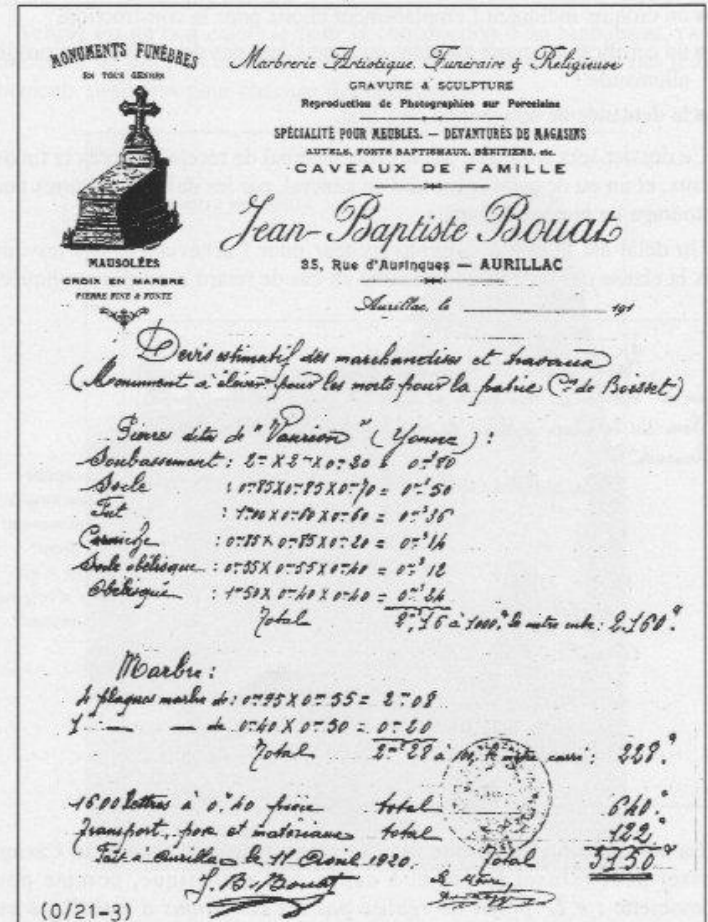 MONUMENTS FUNÈBRES
EN TOUS GENRES
MAUSOLÉES
CROIX EN MARBRE
PIERRE FINE & FONTE
Marbrerie Artistique, Funéraire & Religieuse
GRAVURE & SCULPTURE
Reproduction de Photographies sur Porcelaine
SPÉCIALITÉ POUR MEUBLES. — DEVANTURES DE MAGASINS
AUTELS, FONTS BAPTISMAUX, BÉNITIERS, etc.
CAVEAUX DE FAMILLE
Jean-Baptiste Bouat
25, Rue d'Aurinques — AURILLAC
Aurillac, le 191
Devis estimatif des marchandises et travaux
(Monument à élever pour les morts pour la patrie (Cne de Boisset)
Pierres dites de "Vaurion" (Yonne) :
Soubassement : 2m X 2m X 0m20 = 0m³80
Socle : 0m85 X 0m85 X 0m70 = 0m³50
Fut : 1m00 X 0m60 X 0m60 = 0m³36
Corniche : 0m85 X 0m85 X 0m20 = 0m³14
Socle obélisque : 0m55 X 0m55 X 0m40 = 0m³12
Obélisque : 1m50 X 0m40 X 0m40 = 0m³24
Total 2m³,16 à 1000f le mètre cube : 2.160f
Marbre :
4 plaques marbre de : 0m95 X 0m55 = 2m08
1 — — de 0m40 X 0m50 = 0m20
Total 2m²28 à 100f le mètre carré : 228f
1600 lettres à 0f40 pièce total 640f
Transport, pose et matériaux total 122f
Fait à Aurillac le 11 Avril 1920. Total 3150f
J. B. Bouat Le Maire,
(0/21-3)